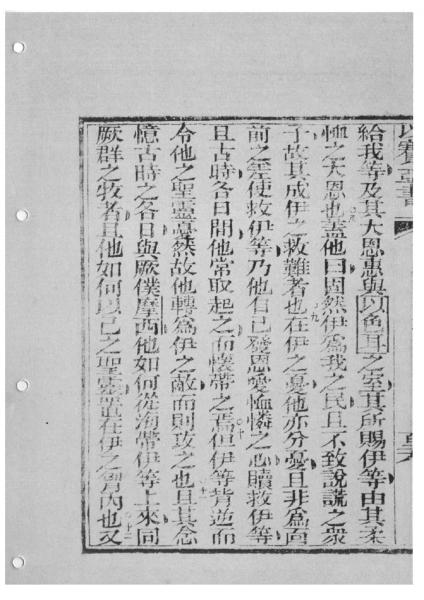 以賽亞書
給我等及其大恩惠與以色耳之室其所賜伊等由其柔
恤之大恩也蓋他曰固然伊爲我之民且不致說謊之衆
子故其成伊之救難者也在伊之憂他亦分憂且非爲面
前之差使救伊等乃他自己發恩愛恤憐之心贖救伊等
且古時各日間他常取起之而懷帶之焉但伊等背逆而
令他之聖靈憂然故他轉爲伊之敵而則攻之也且其念
憶古時之各日與厥僕摩西他如何從海帶伊等上來同
厥群之牧者且他如何以己之聖靈置在伊之會內也又